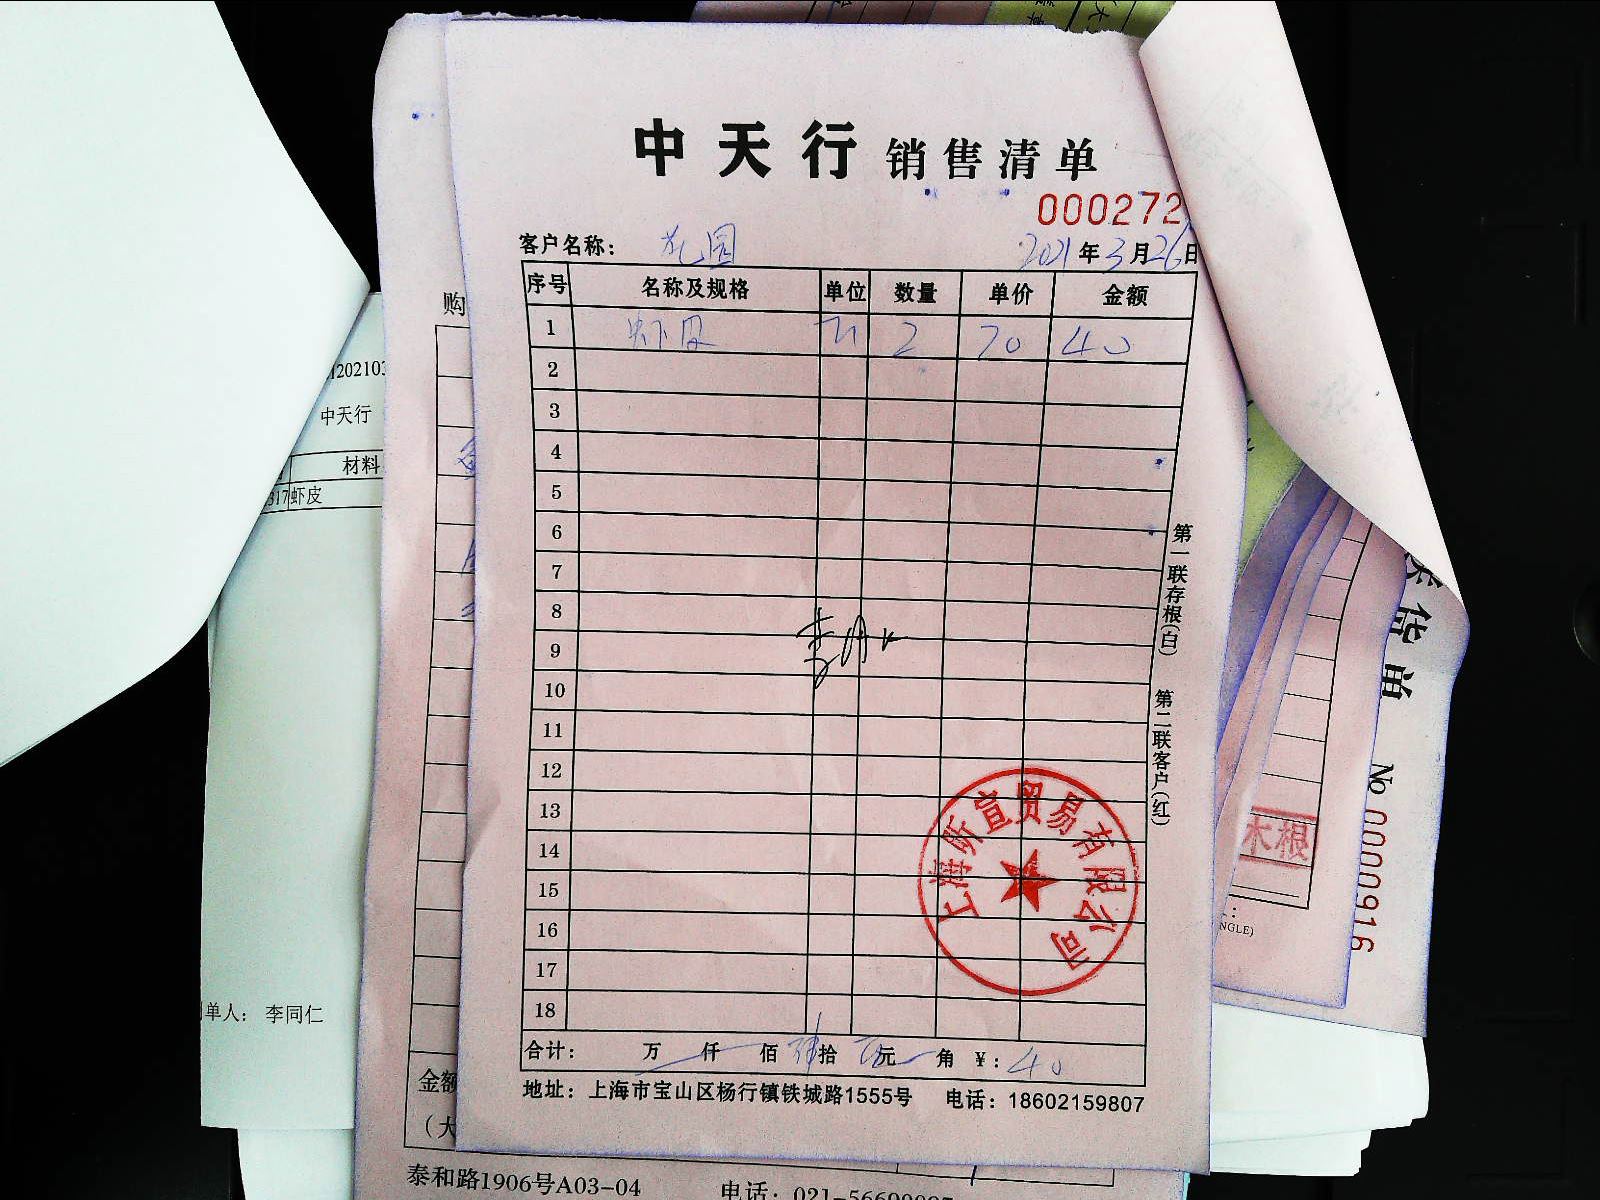 中天行 销售清单
000272
客户名称： 花园 2021年3月26日
序号 名称及规格 单位 数量 单价 金额
1 虾皮 2 20 40
2
3
4
5
6
7
8
9
10
11
12
13
14
15
16
17
18
第一联存根(白) 第二联客户(红)
上海昕宣贸易有限公司
合计： 万 仟 佰 肆拾 元 角 ￥: 40
地址：上海市宝山区杨行镇铁城路1555号 电话：18602159807
购
1202103
中天行
材料
317 虾皮
单人： 李同仁
金额
（大
泰和路1906号A03-04 电话：021-566
货单
No 0000916
木根
NGLE)